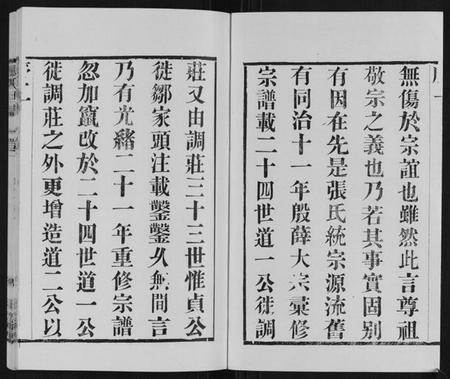 無傷於宗誼也雖然此言尊祖
敬宗之義也乃若其事實固别
有因在先是張氏統宗源流舊
有同治十一年殷薛大宗彙修
宗譜載二十四世道一公徙調
莊又由調莊三十三世惟貞公
徙鄒家頭注載鑿鑿久無間言
乃有光緒二十一年重修宗譜
忽加竄改於二十四世道一公
徙調莊之外更增造道二公以